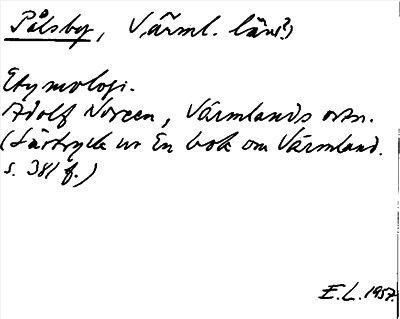 Pålsby, Värml. län(?)
Etymologi.
Adolf Noreen, Värmlands ortn.
(Särtryck ur En bok om Värmland.
s. 381 f.)
E.L. 1957.